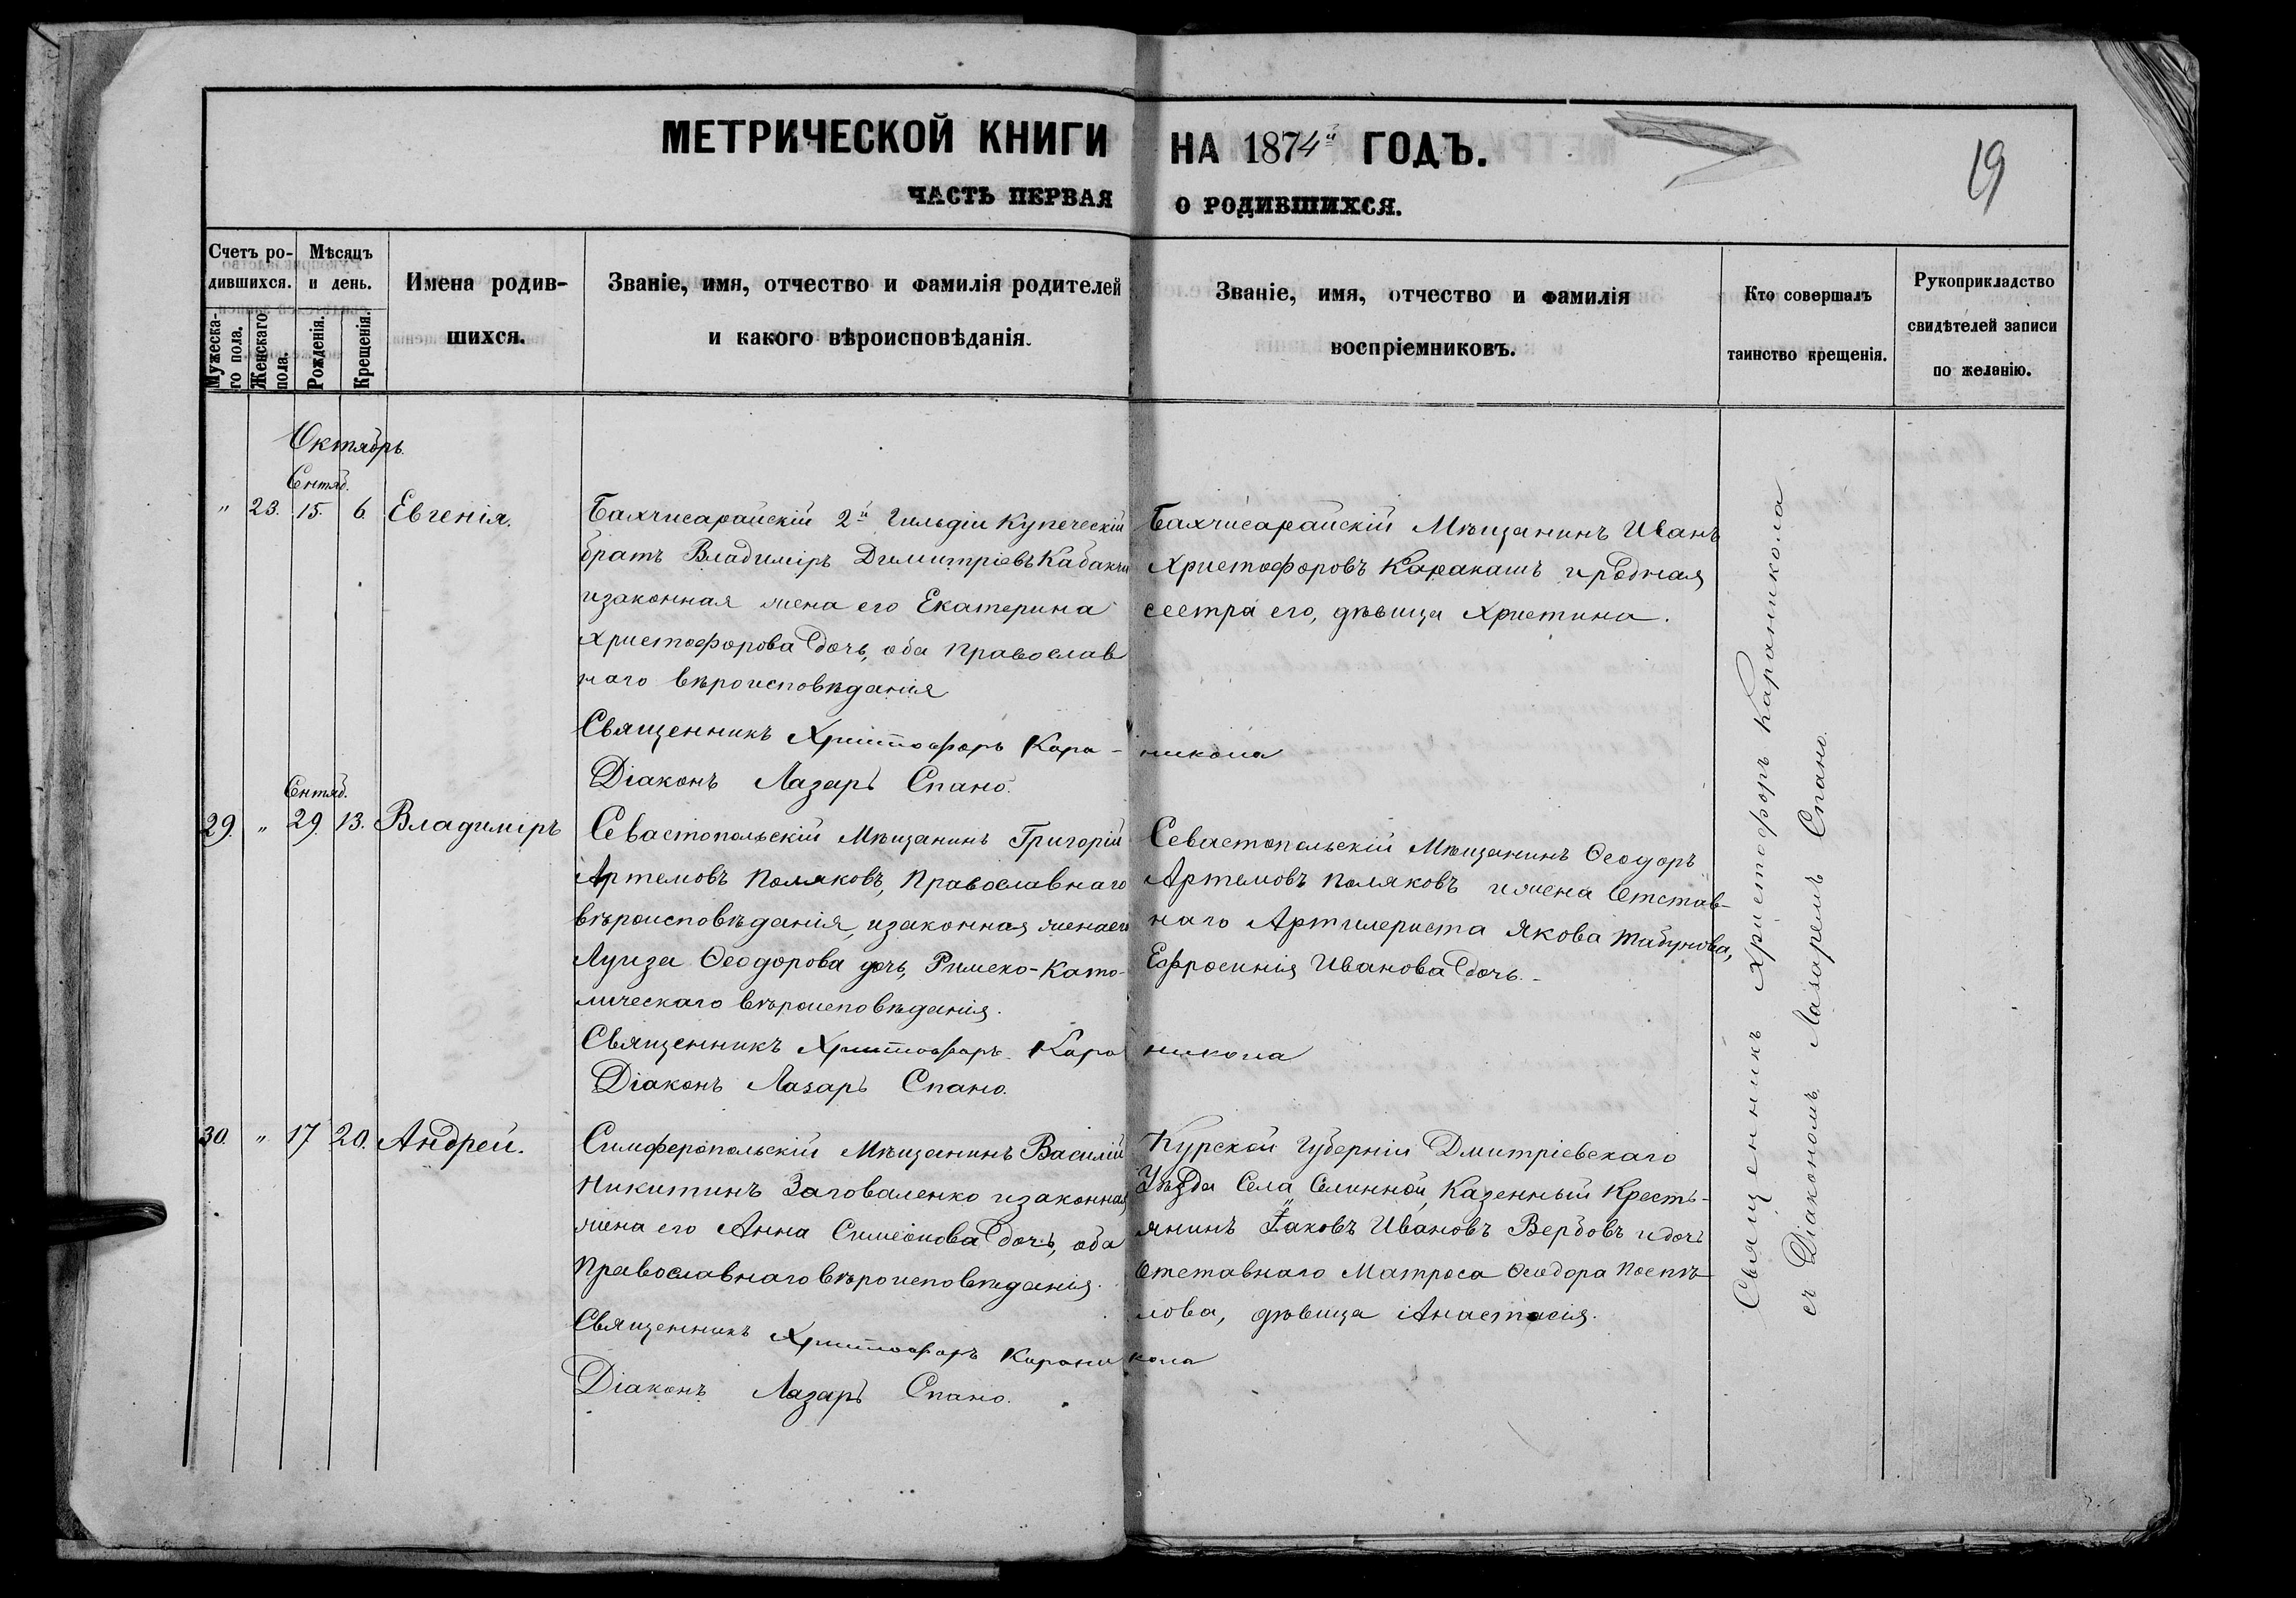 МЕТРИЧЕСКОЙ КНИГИ НА 1874й ГОДЪ.
19
ЧАСТЬ ПЕРВАЯ О РОДИВШИХСЯ.
Счетъ ро-
дившихся.
Мужеска-
го пола.
Женскаго
пола.
Мѣсяцъ
и день.
Рожденія.
Крещенія.
Имена родив-
шихся.
Званіе, имя, отчество и фамилія родителей
и какого вѣроисповѣданія.
Званіе, имя, отчество и фамилія
воспріемниковъ.
Кто совершалъ
таинство крещенія.
Рукоприкладство
свидѣтелей записи
по желанію.
Октябрь.
Сентяб.
" 23. 15. 6. Евгенія.
Бахчисарайскій 2й Гильдіи Купеческій
братъ Владиміръ Димитріевъ Кабакчи
изаконная жена его Екатерина
Христофорова дочь, оба православ
наго вѣроисповѣданія
Бахчисарайскій Мѣщанинъ Иванъ
Христофоровъ Каракашъ и родная
сестра его, дѣвица Христина.
Священникъ Христофоръ Кара-никола
Діаконъ Лазарь Спано.
Сентяб.
29. " 29. 13. Владиміръ
Севастопольскій Мѣщанинъ Григорій
Артемовъ Поляковъ, Православнаго
вѣроисповѣданія, изаконная жена его
Луиза Ѳеодорова дочь, Римско-Като-
лическаго вѣроисповѣданія.
Севастопольскій Мѣщанинъ Ѳеодоръ
Артемовъ Поляковъ и жена Отстав-
наго Артилериста Якова Табунова,
Ефросинія Иванова дочь.-
Священникъ Христофоръ Кара никола
Діаконъ Лазарь Спано.
30. " 17 20. Андрей.
Симферопольскій Мѣщанинъ Василій
Никитинъ Заговаленко изаконная
жена его Анна Симеонова дочь, оба
Православнаго вѣроисповѣданія.
Курской Губерніи Дмитріевскаго
Уѣзда Села Селинной, Казенный Кресть-
янинъ Іаковъ Ивановъ Вербовъ и дочь
Отставнаго Матроса Ѳеодора Поспѣ-
лова, дѣвица Анастасія.
Священникъ Христофоръ Караникола
Діаконъ Лазарь Спано.
Священникъ Христофоръ Караникола
съ Діакономъ Лазаремъ Спано.